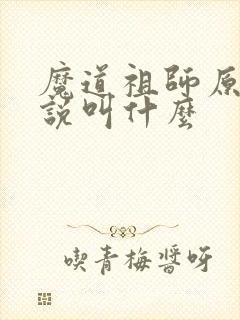 魔道祖師原
說叫什麼
喫青梅醬呀